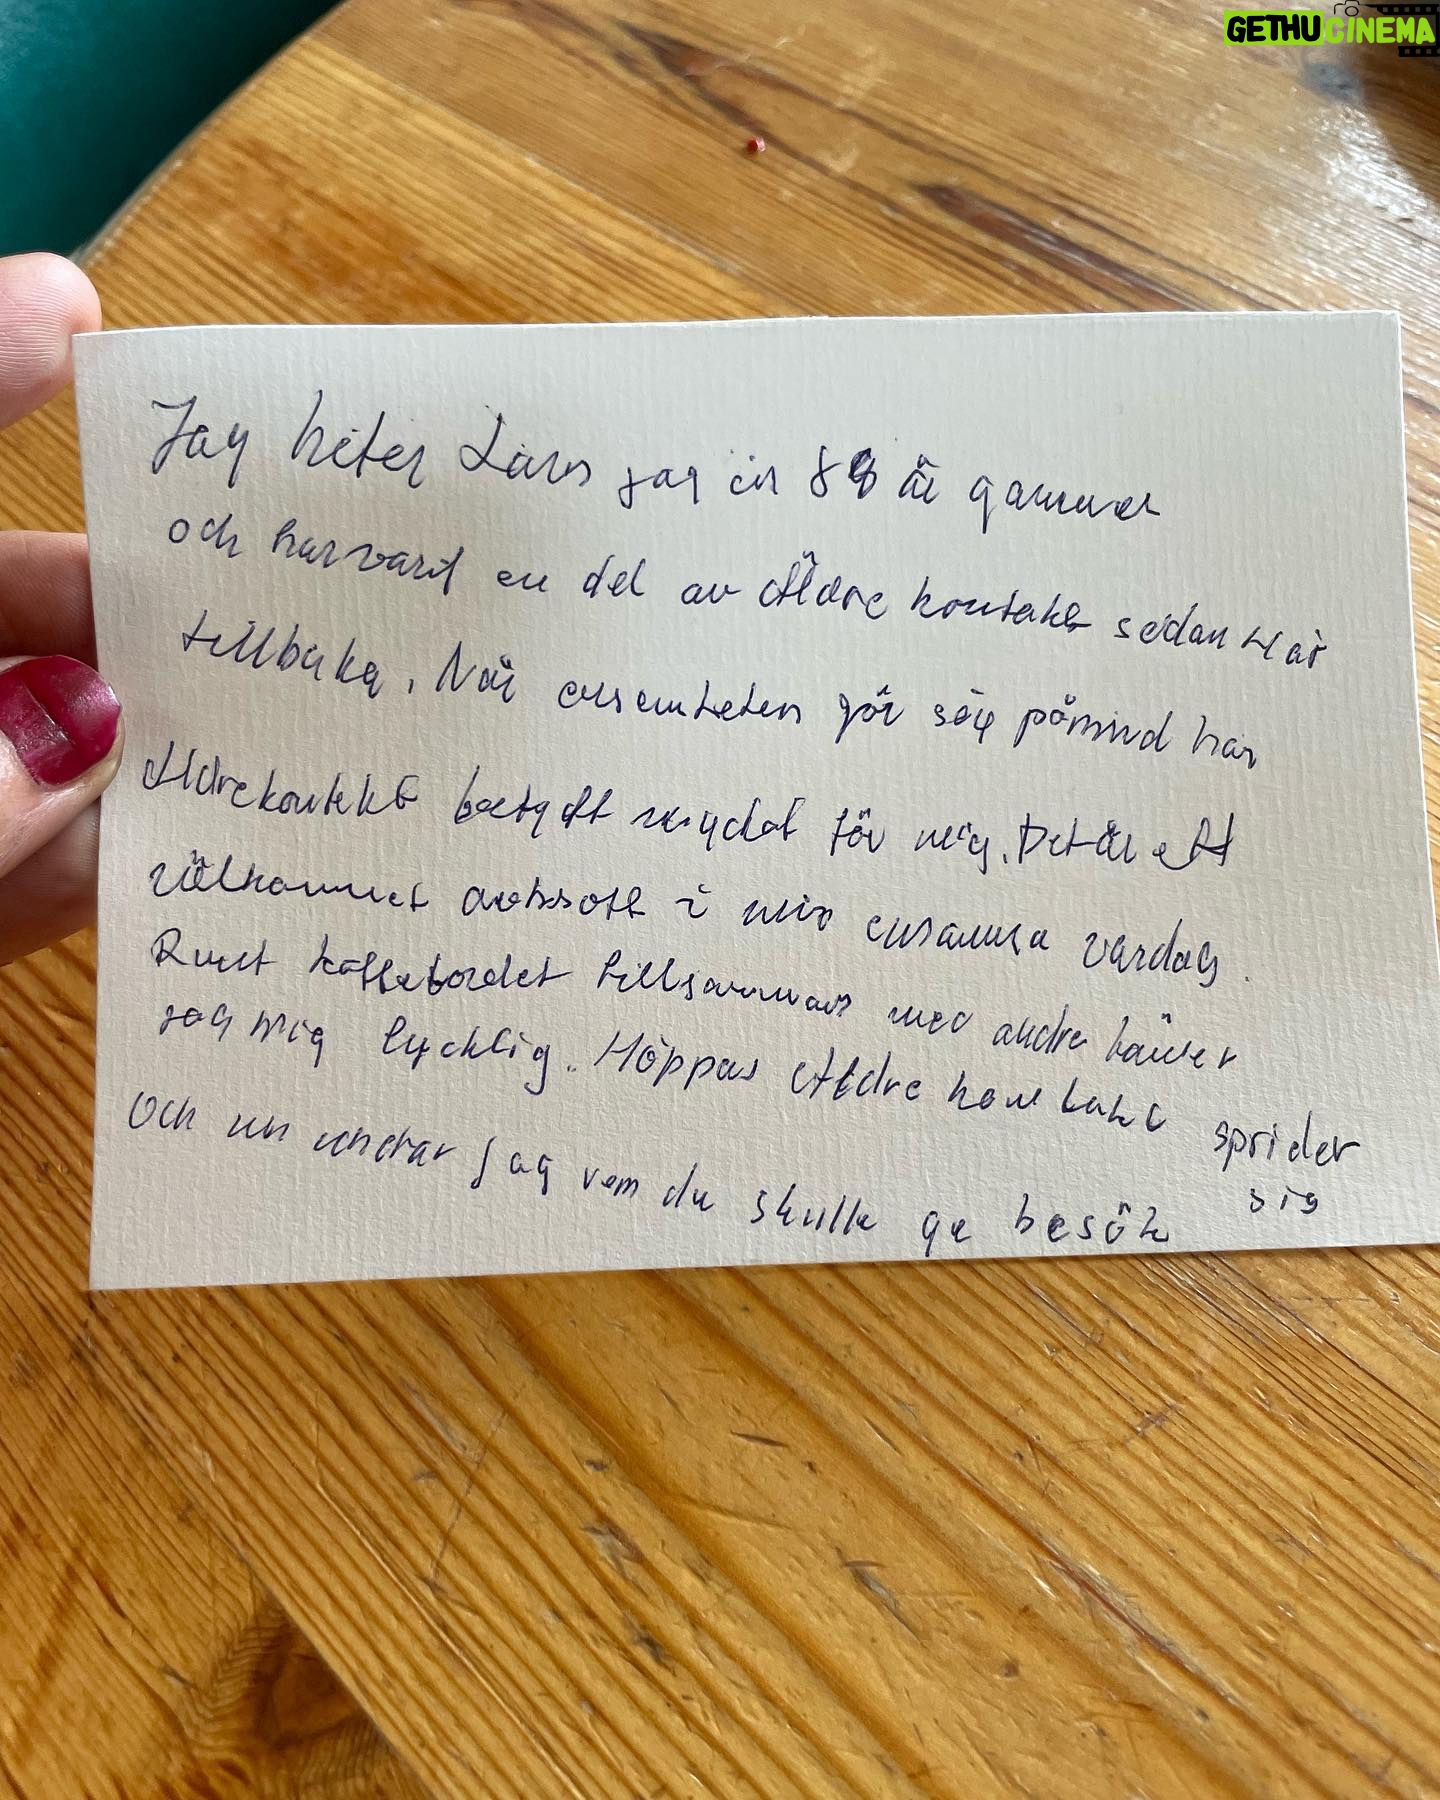 GETHUCINEMA
Jag heter Lars jag är 88 år gammal
och har varit en del av Äldrekontakt sedan 4 år
tillbaka. När ensamheten gör sig påmind har
Äldrekontakt betytt mycket för mig. Det är ett
välkommet avbrott i min ensamma vardag.
Runt kaffebordet tillsammans med andra känner
jag mig lycklig. Hoppas Äldrekontakt sprider
sig
Och nu undrar jag vem du skulle ge besök